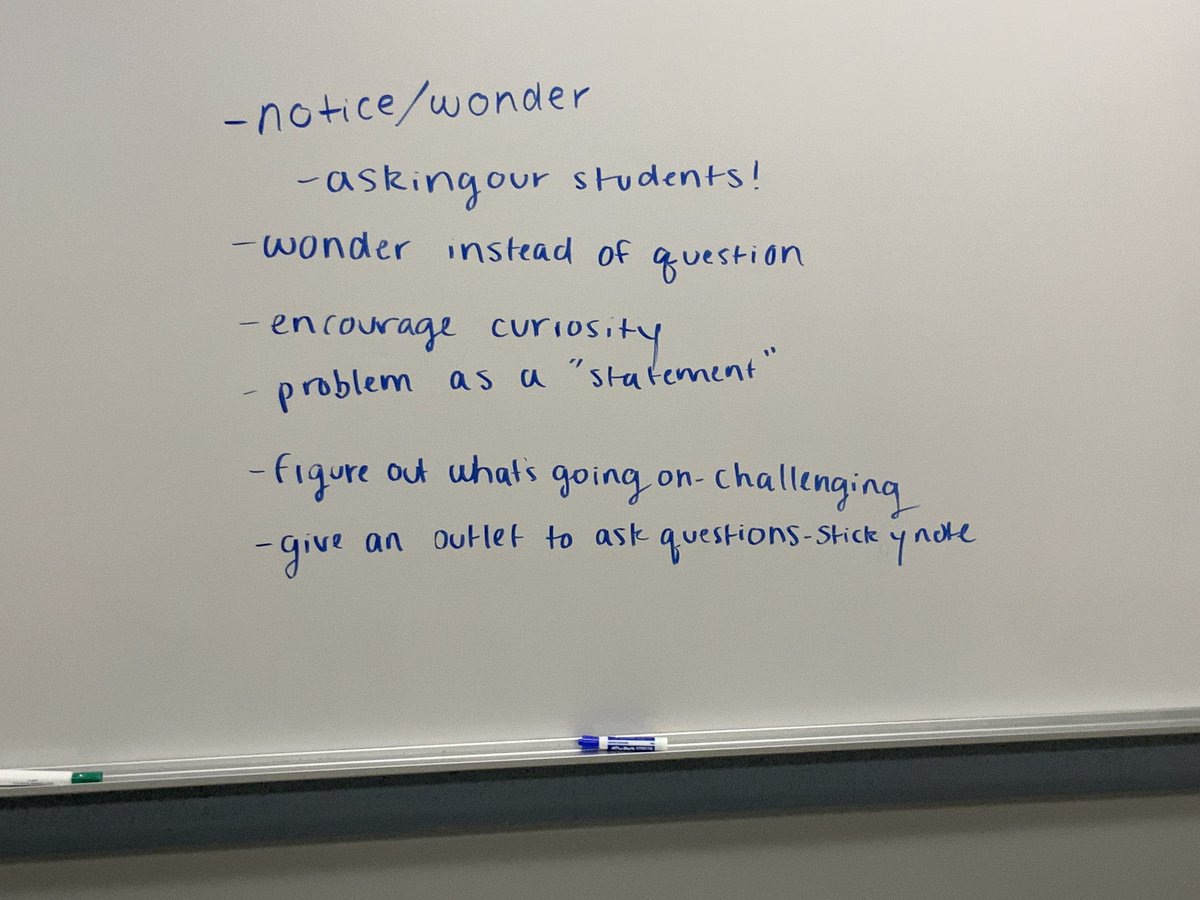 -notice/wonder
-asking our students!
-wonder instead of question
-encourage curiosity
-problem as a "statement"
-figure out what's going on-challenging
-give an outlet to ask questions-sticky note